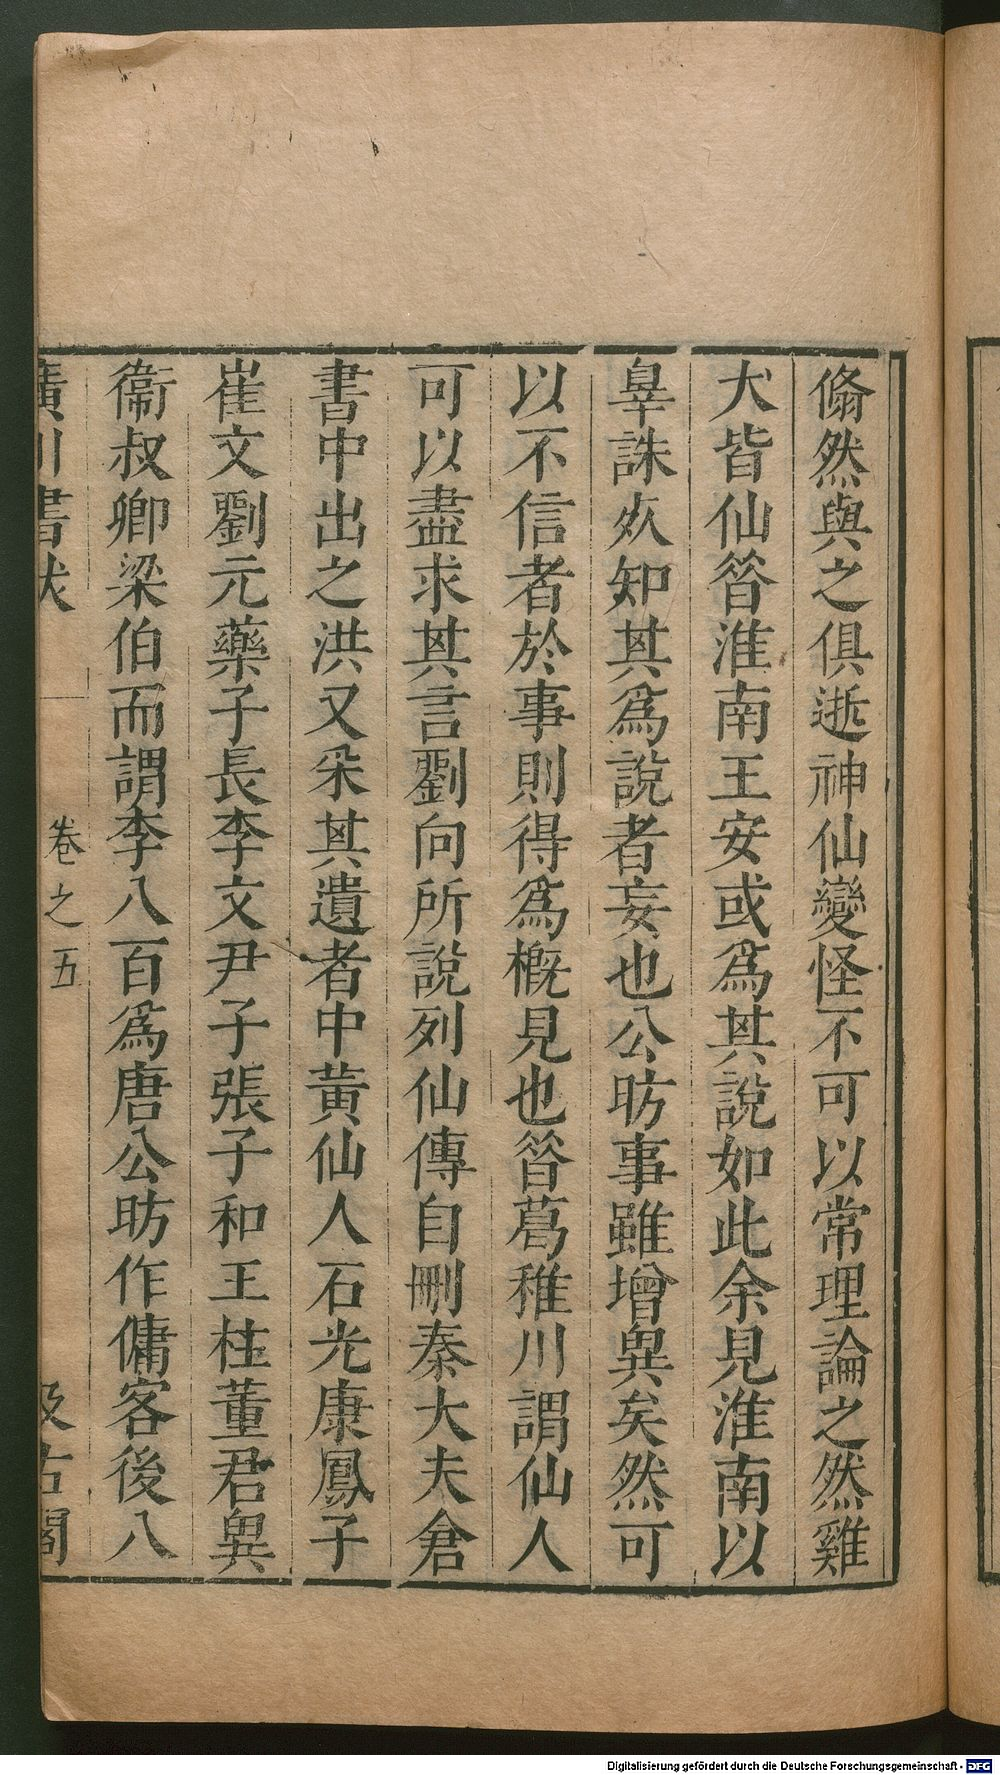 翛然與之俱逝神仙變怪不可以常理論之然雞
犬皆仙昝淮南王安或爲其說如此余見淮南以
辠誅㱙知其爲說者妄也公昉事雖增異矣然可
以不信者於事則得爲概見也昝葛稚川謂仙人
可以盡求其言劉向所說列仙傳自刪秦大夫倉
書中出之洪又采其遺者中黃仙人石光康鳳子
崔文劉元藥子長李文尹子張子和王柱董君異
衞叔卿梁伯而謂李八百爲唐公昉作傭客後八
廣川書㦿 卷之五 汲古閣
Digitalisierung gefördert durch die Deutsche Forschungsgemeinschaft - DFG